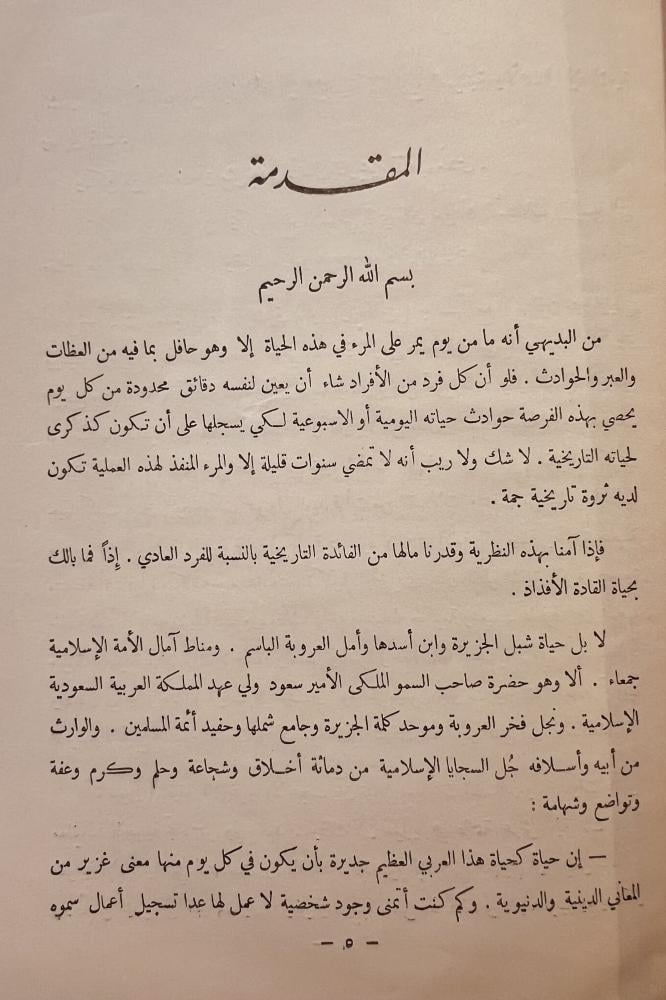 المقدمة
بسم الله الرحمن الرحيم
من البديهي أنه ما من يوم يمر على المرء في هذه الحياة إلا وهو حافل بما فيه من العظات
والعبر والحوادث . فلو أن كل فرد من الأفراد شاء أن يعين لنفسه دقائق محدودة من كل يوم
يحصي بهذه الفرصة حوادث حياته اليومية أو الاسبوعية لكي يسجلها على أن تكون كذكرى
لحياته التاريخية . لا شك ولا ريب أنه لا تمضي سنوات قليلة إلا والمرء المنفذ لهذه العملية تكون
لديه ثروة تاريخية جمة .
فإذا آمنا بهذه النظرية وقدرنا مالها من الفائدة التاريخية بالنسبة للفرد العادي . إذاً فما بالك
بحياة القادة الأفذاذ .
لا بل حياة شبل الجزيرة وابن أسدها وأمل العروبة الباسم . ومناط آمال الأمة الإسلامية
جمعاء . ألا وهو حضرة صاحب السمو الملكى الأمير سعود ولي عهد المملكة العربية السعودية
الإسلامية . ونجل فخر العروبة وموحد كلمة الجزيرة وجامع شملها وحفيد أئمة المسلمين . والوارث
من أبيه وأسلافه جُل السجايا الإسلامية من دماثة أخلاق وشجاعة وحلم وكرم وعفة
وتواضع وشهامة :
— إن حياة كحياة هذا العربي العظيم جديرة بأن يكون في كل يوم منها معنى غزير من
المعاني الدينية والدنيوية . وكم كنت أتمنى وجود شخصية لا عمل لها عدا تسجيل أعمال سموه
— ٥ —